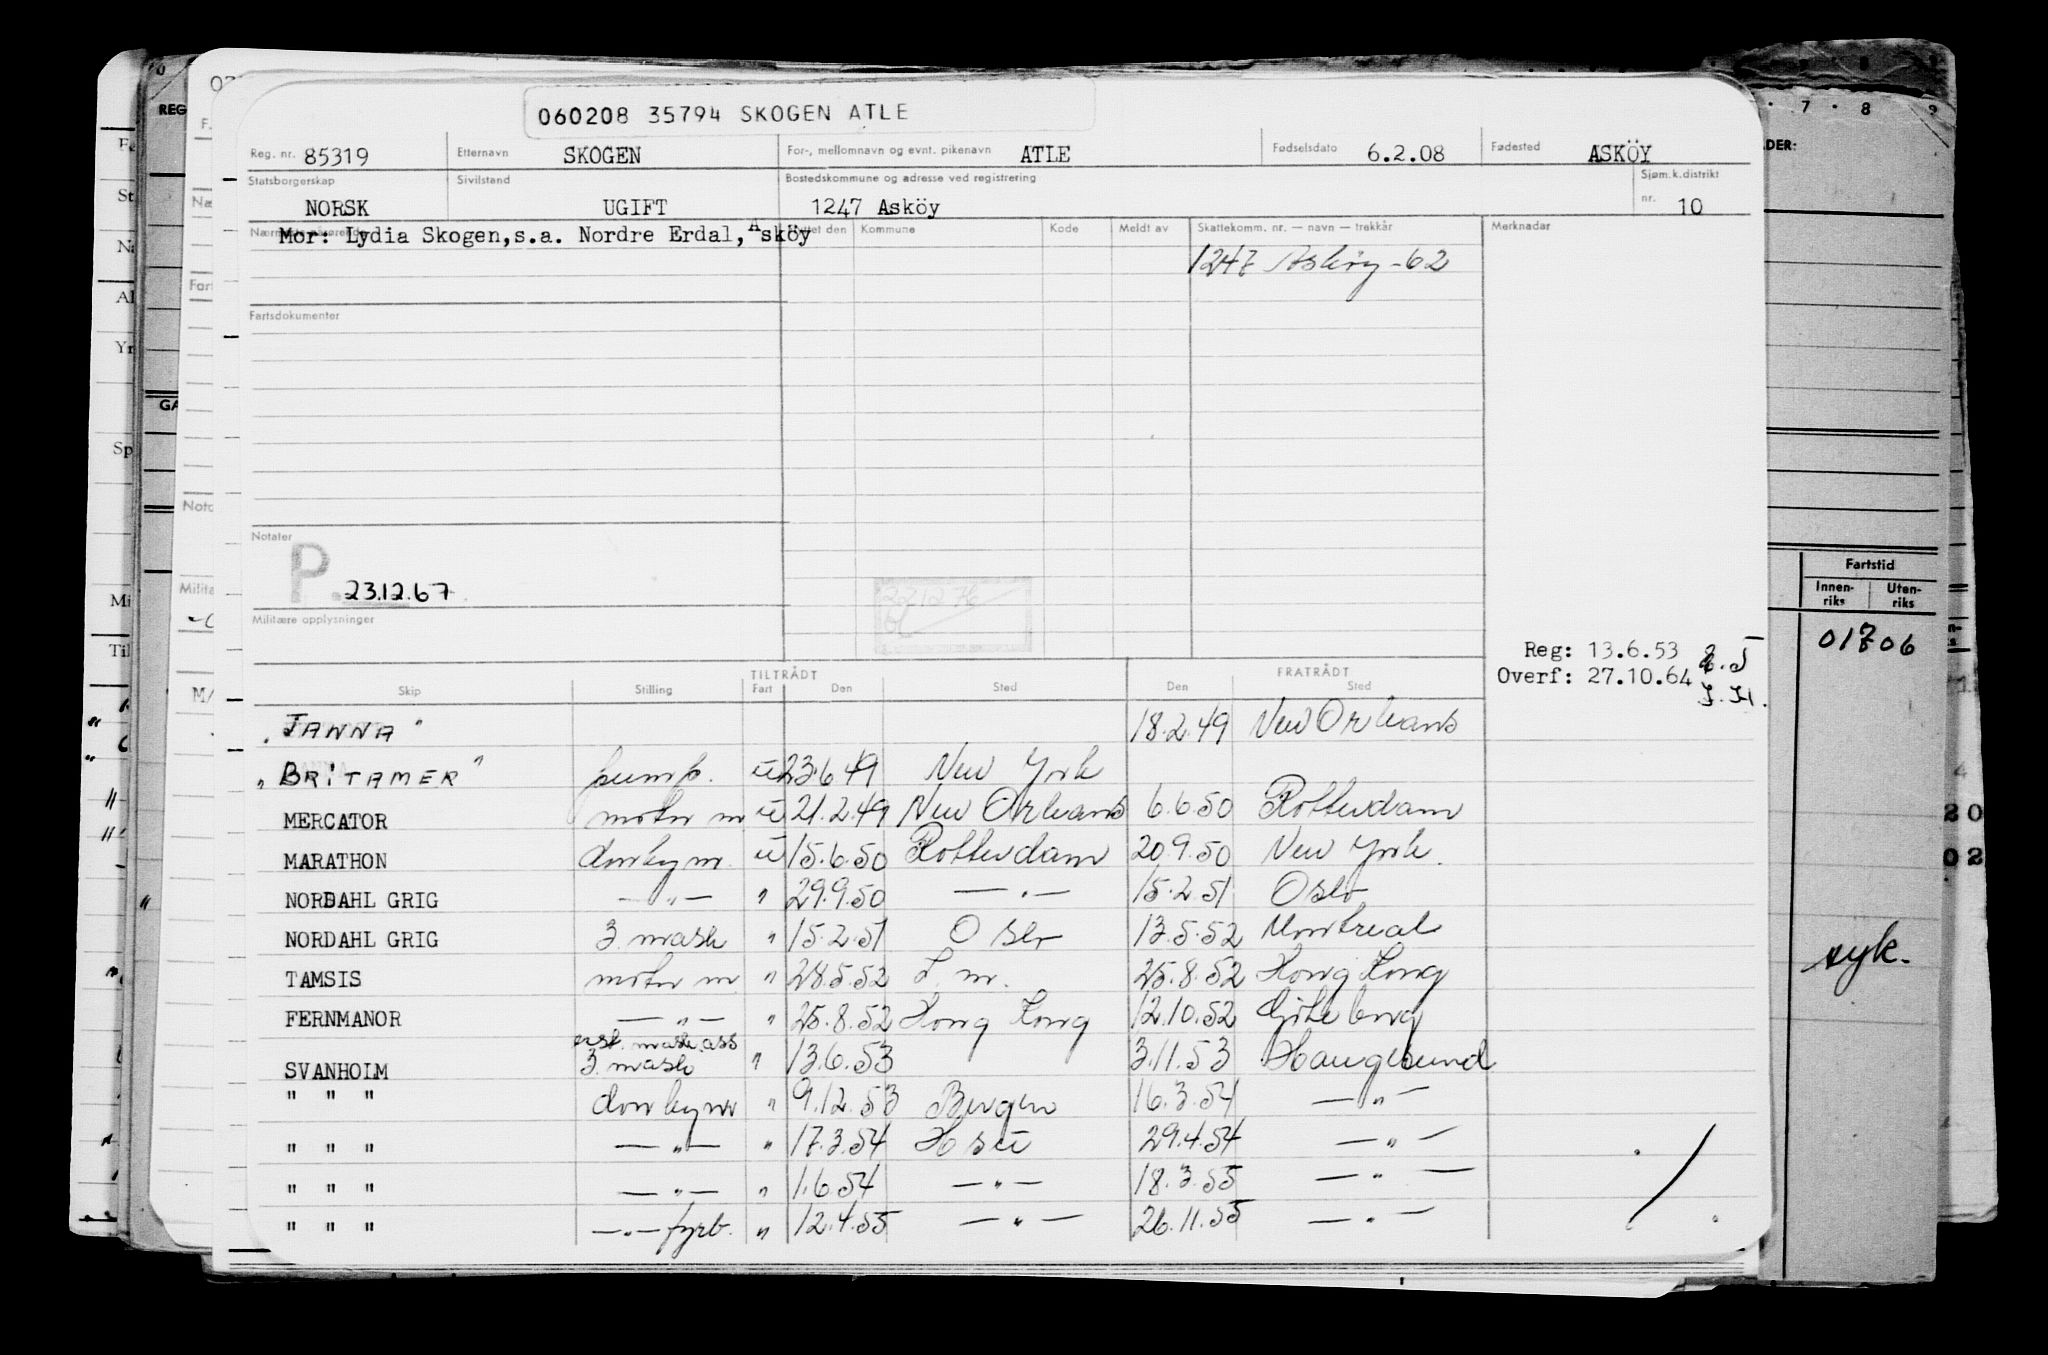 060208 35794 SKOGEN ATLE
Reg. nr. 85319 Etternavn SKOGEN For-, mellomnavn og evnt. pikenavn ATLE Fødselsdato 6.2.08 Fødested ASKÖY
Statsborgerskap Sivilstand Bostedskommune og adresse ved registrering Sjøm.k.distrikt
NORSK UGIFT 1247 Asköy nr. 10
Mor: Lydia Skogen,s.a. Nordre Erdal, Asköy
Flyttet den Kommune Kode Meldt av Skattekomm. nr. — navn — trekkår Merknader
1247 Asköy -62
Fartsdokumenter
Notater
P. 23.12.67
Militære opplysninger
Reg: 13.6.53
Overf: 27.10.64
TILTRÅDT FRATRÅDT
Skip Stilling Fart Den Sted Den Sted
"JANNA" 18.2.49 New Orleans
"BRITAMER" pump. u 23.6.49 New York
MERCATOR motor m u 21.2.49 New Orleans 6.6.50 Rotterdam
MARATHON donkeym. u 15.6.50 Rotterdam 20.9.50 New York.
NORDAHL GRIG —"— " 29.9.50 —"— 15.2.51 Oslo
NORDAHL GRIG 3. mask " 15.2.51 Oslo 13.5.52 Montreal
TAMSIS motor m. " 28.5.52 25.8.52 Hong Kong
FERNMANOR —"— " 25.8.52 Hong Kong 12.10.52 Göteborg
mask.ass
SVANHOLM 3. mask " 13.6.53 3.11.53 Haugesund
" " " donkeym " 9.12.53 Bergen 16.3.54 —"—
" " " —"— " 17.3.54 29.4.54 —"—
" " " —"— " 1.6.54 —"— 18.3.55 —"—
" " " —"— fyrb. " 12.4.55 —"— 26.11.55 —"—
REG
GA
7 8
DER:
Fartstid
Innen-
riks
Uten-
riks
01706
20
02
syk.